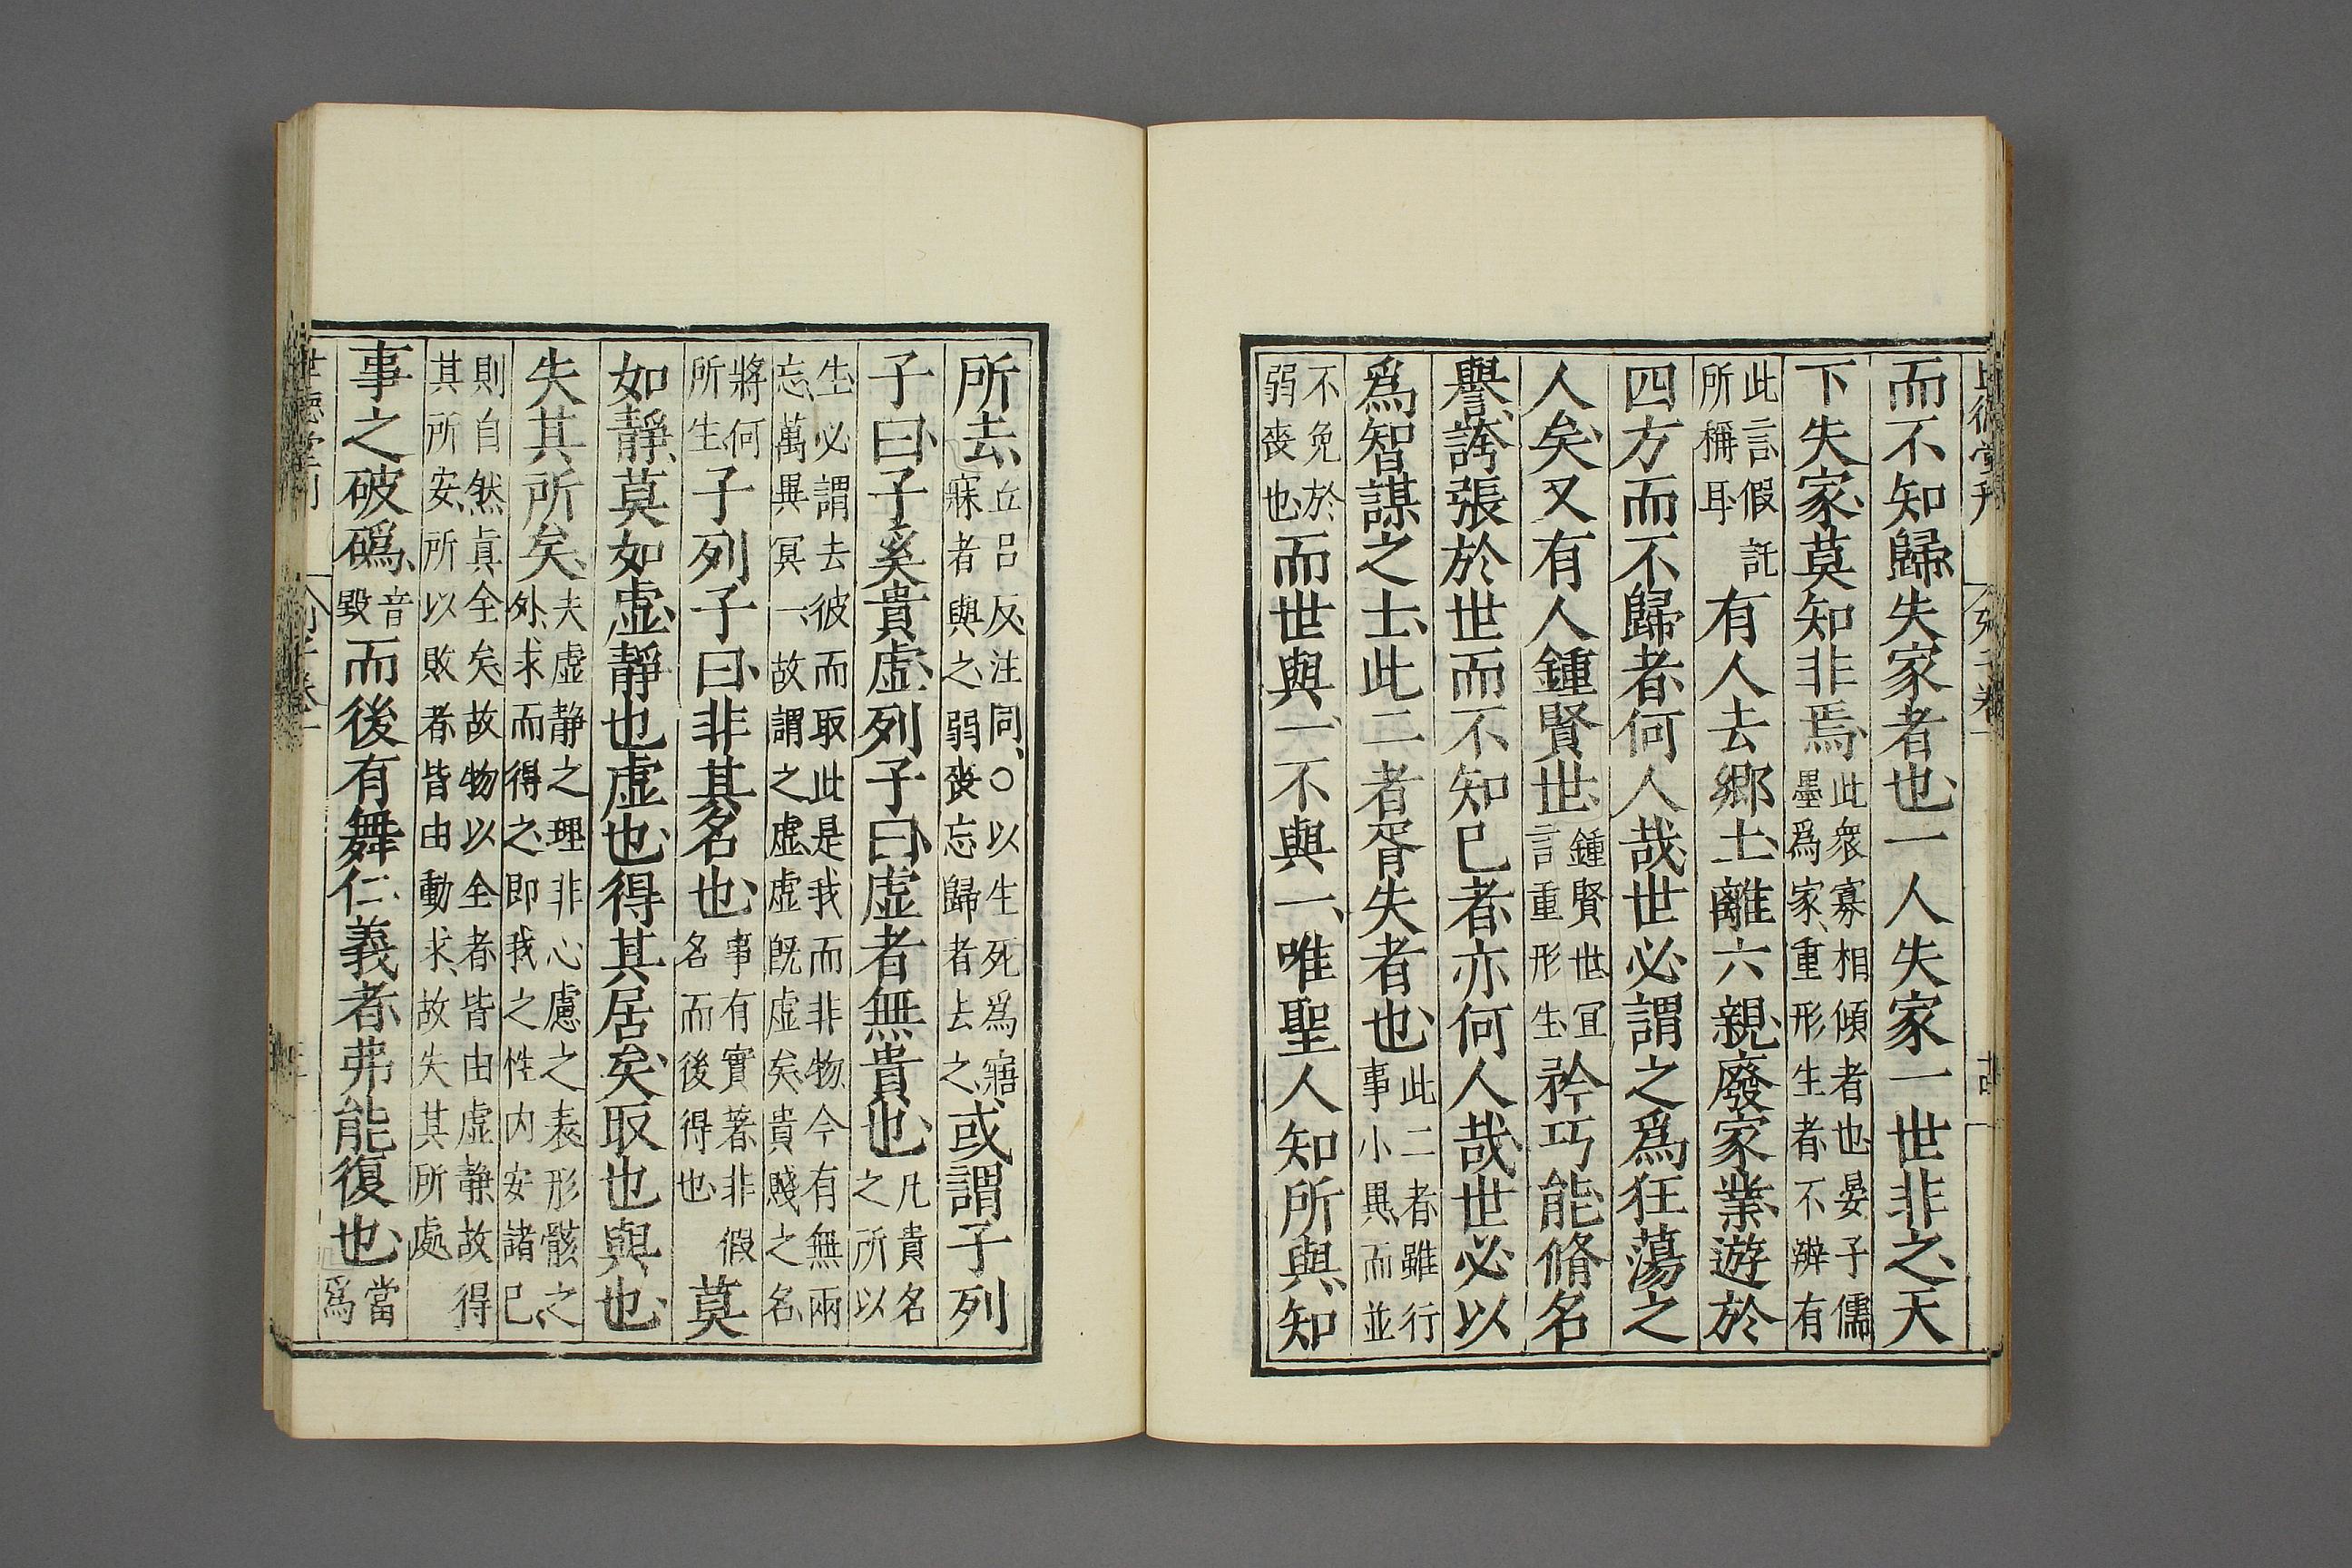 世德堂刊 列子卷一 十四
而不知歸失家者也一人失家一世非之天
下失家莫知非焉此衆寡相傾者也晏子儒
墨爲家重形生者不辨有
此言假託
所稱耳有人去鄉土離六親廢家業遊於
四方而不歸者何人哉世必謂之爲狂蕩之
人矣又有人鍾賢世鍾賢世冝
言重形生矜巧能脩名
譽誇張於世而不知已者亦何人哉世必以
爲智謀之士此二者胥失者也此二者雖行
事小異而並
不免於
弱喪也而世與一不與一唯聖人知所與知
所去丘呂反注同○以生死爲寤
寐者與之弱喪忘歸者去之或謂子列
子曰子奚貴虛列子曰虛者無貴也凡貴名
之所以
生必謂去彼而取此是我而非物今有無兩
忘萬異冥一故謂之虛虛旣虛矣貴賤之名
將何
所生子列子曰非其名也事有實著非假
名而後得也莫
如靜莫如虛靜也虛也得其居矣取也與也
失其所矣夫虛靜之理非心慮之表形骸之
外求而得之即我之性内安諸己
則自然眞全矣故物以全者皆由虛靜故得
其所安所以敗者皆由動求故失其所處
事之破䃣音
毁而後有舞仁義者弗能復也當
爲
世德堂刊 列子卷一